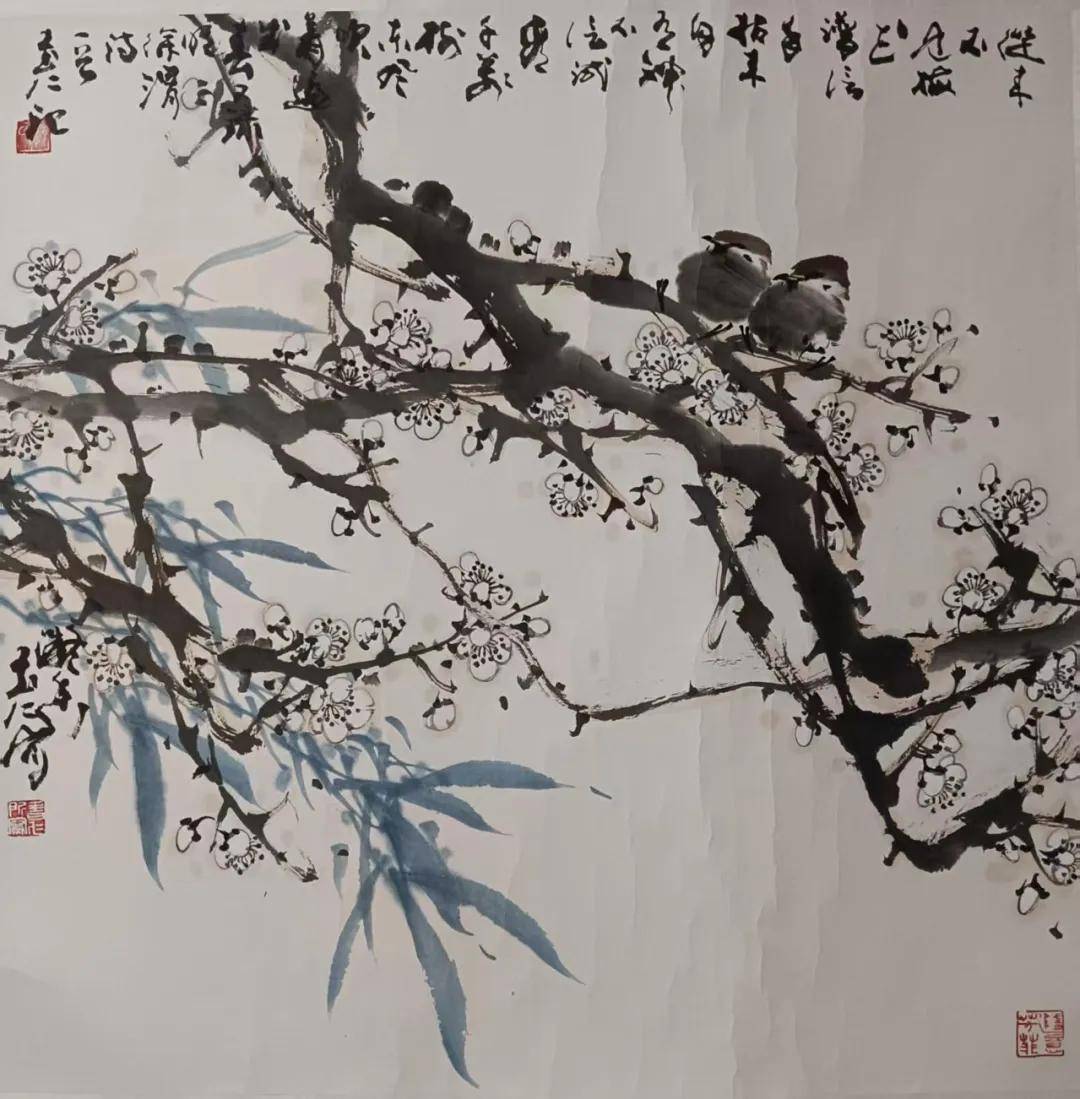 從來
不
見梅
花
譜信
手
拈來
自
有神
不
信試
看
千萬
樹
東風
吹
着便
成
春
徐渭
詩